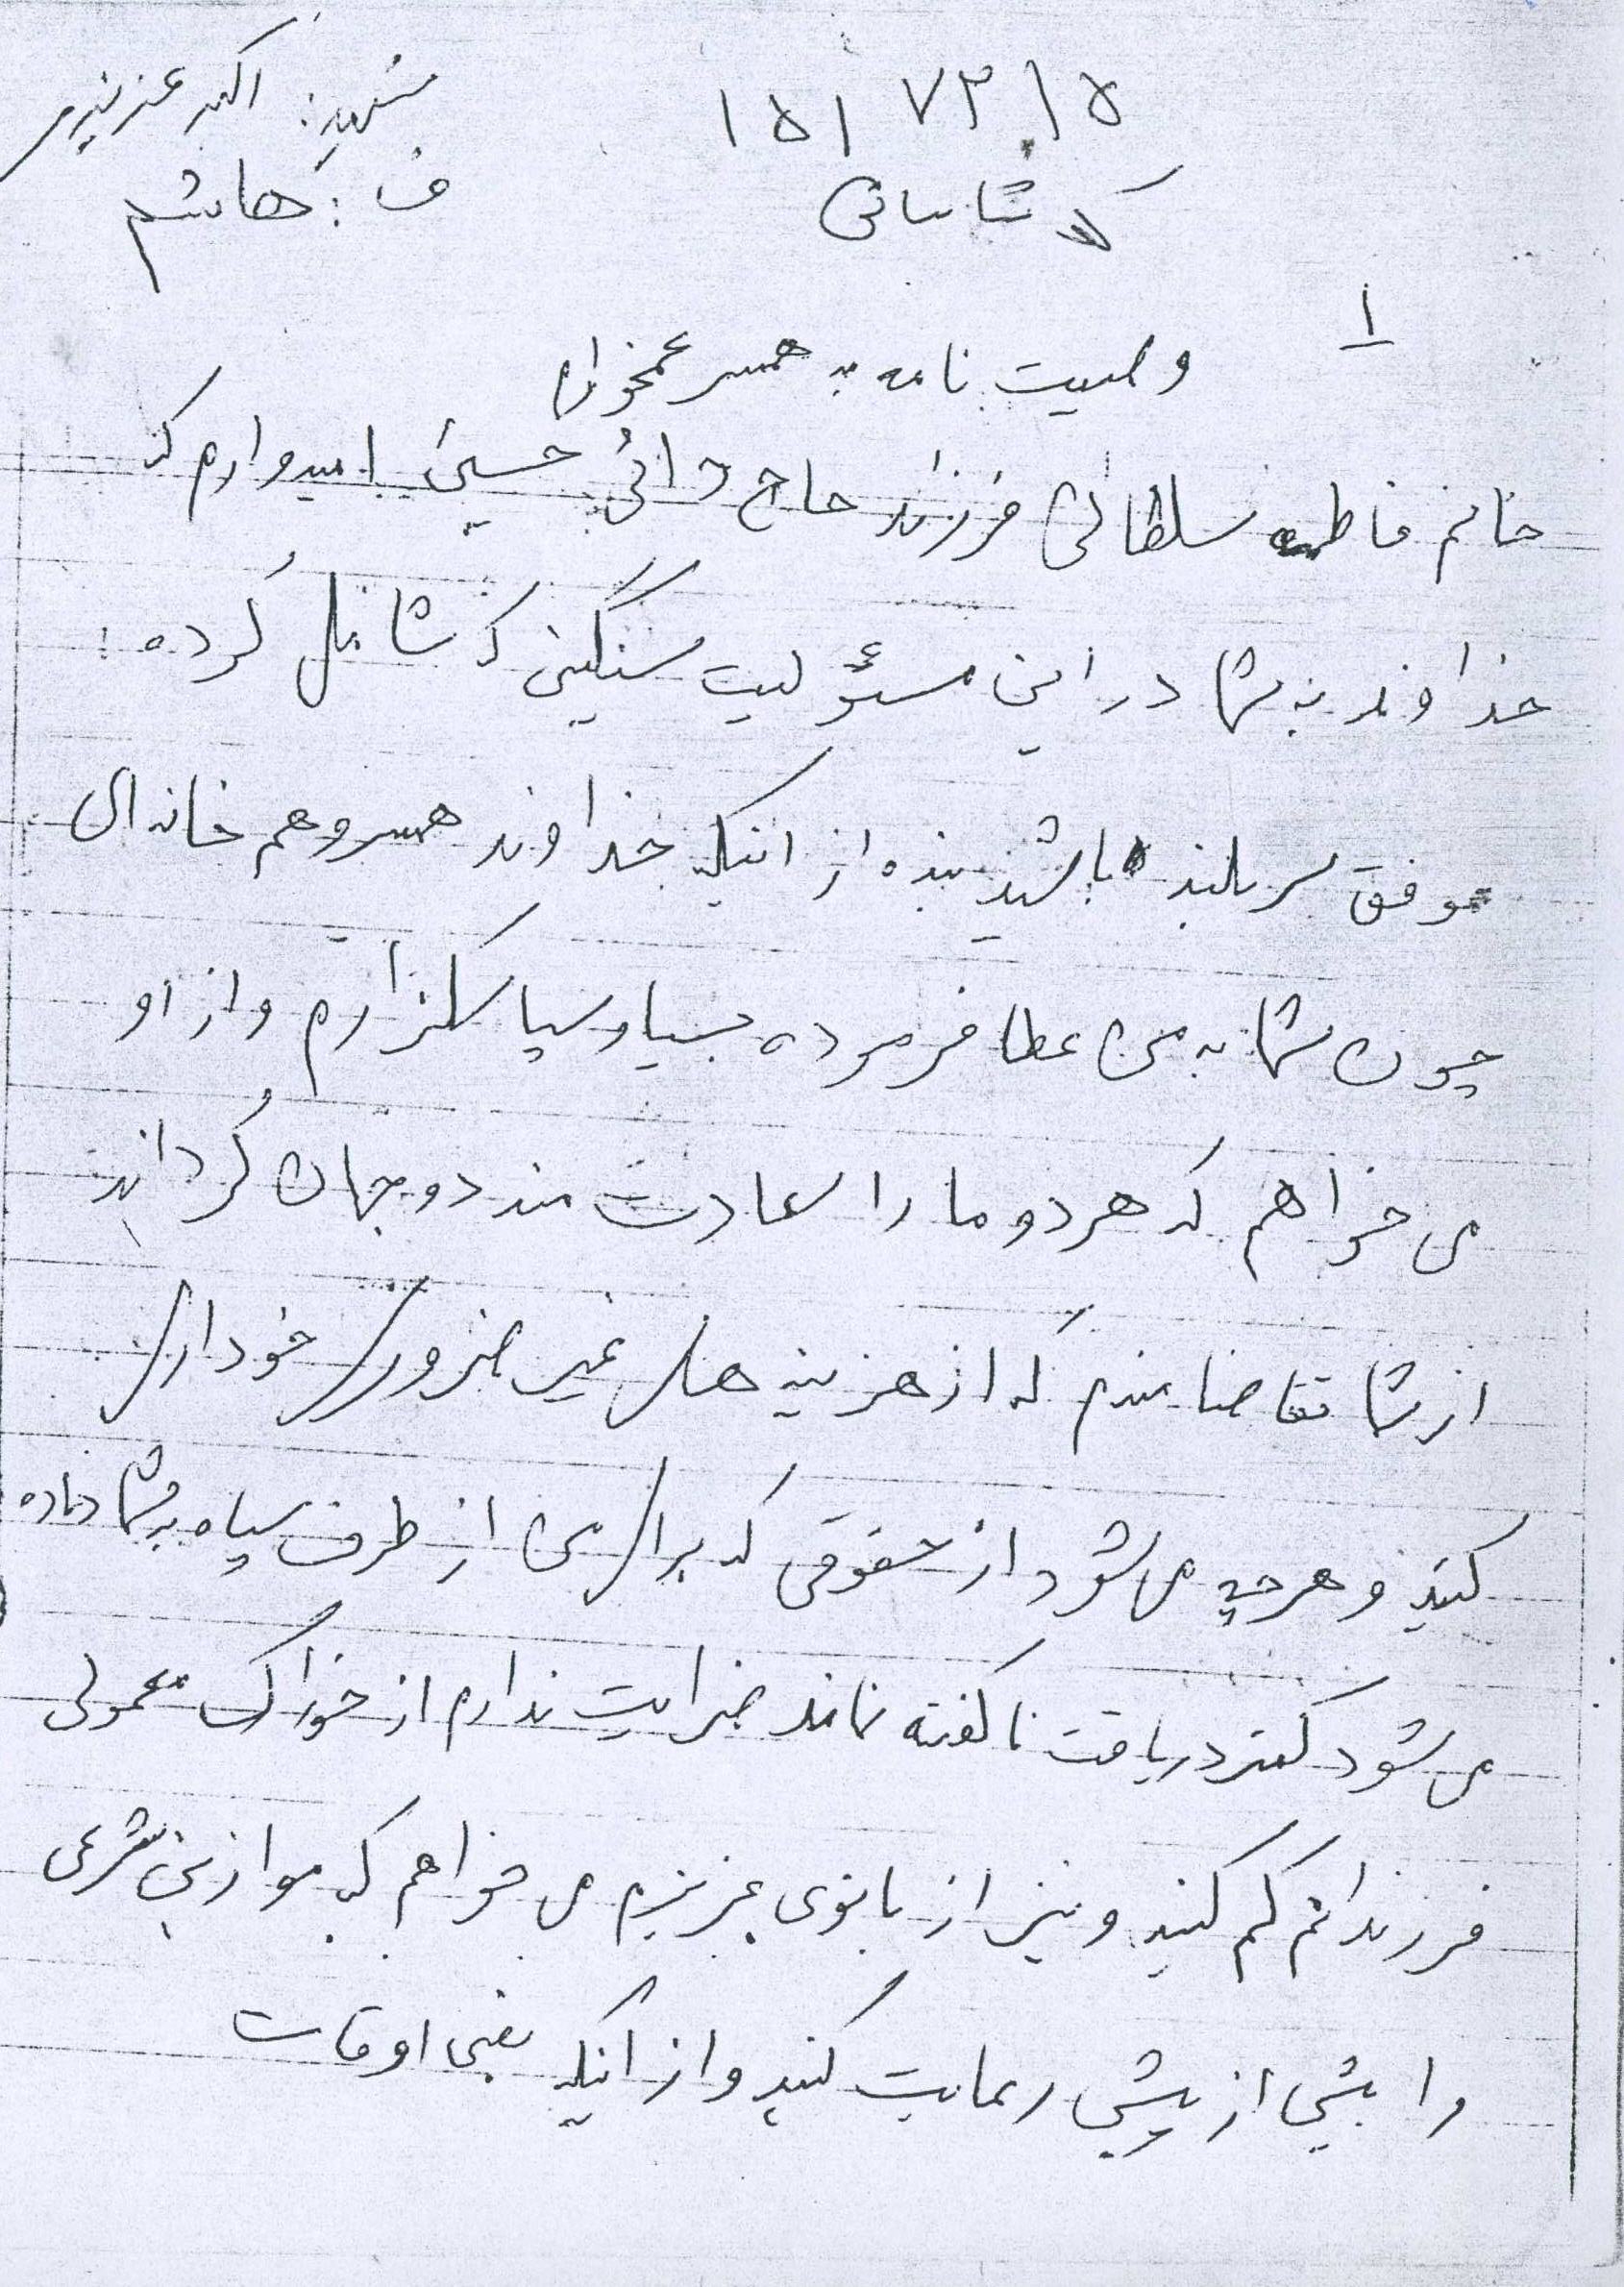 شهید: اکبر عزیزی
ف: هاشم
۱۵۱۷۳۱۵
کد شناسائی
۱
وصیت نامه به همسر غمخوارم
خانم فاطمه سلطانی فرزند حاج دائی حسین امیدوارم که
خداوند به شما در این مسئولیت سنگینی که شامل کرده
موفق سربلند باشید بنده از اینکه خداوند همسر و هم خانه ای
چون شما به من عطا فرموده بسیار سپاسگزارم و از او
می خواهم که هر دو ما را سعادت مند دو جهان گرداند
از شما تقاضامندم که از هزینه های غیر ضروری خودداری
کنید و هر چه می شود از حقوقی که برای من از طرف سپاه به شما داده
می شود کمتر دریافت ناگفته نماند رضایت ندارم از خوراک معمولی
فرزندانم کم کنید و نیز از بانوی عزیزم می خواهم که موازین شرعی
را بیش از پیش رعایت کنید و از اینکه بعضی اوقات